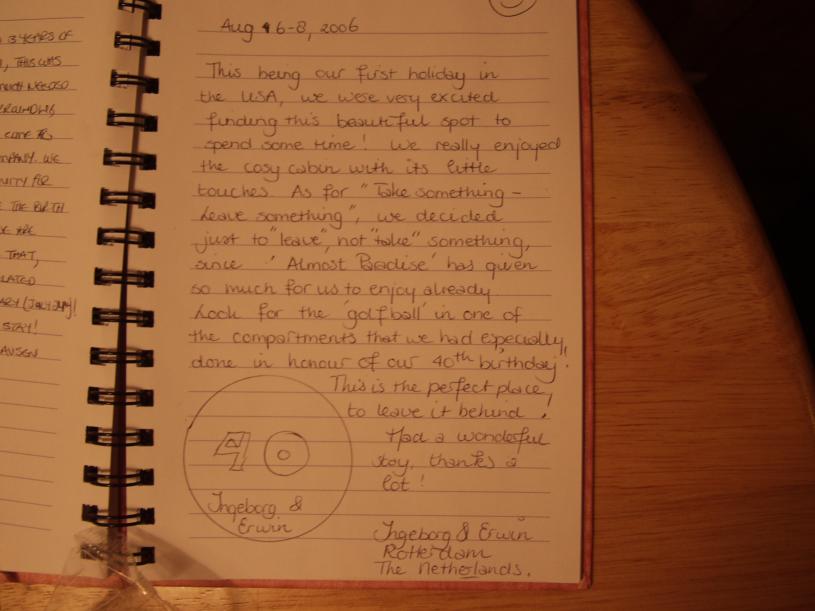 3 YEARS OF
, THIS WAS
MUCH NEEDED
COME
COMPANY. WE
FOR
THE BIRTH
ARE
THAT,
STAY!
Aug 6-8, 2006
This being our first holiday in
the USA, we were very excited
finding this beautiful spot to
spend some time! We really enjoyed
the cosy cabin with its little
touches. As for "Take something -
Leave something", we decided
just to "leave", not "take" something,
since 'Almost Paradise' has given
so much for us to enjoy already
Look for the 'golfball' in one of
the compartments that we had especially
done in honour of our 40th birthday!
This is the perfect place,
to leave it behind.
Had a wonderful
stay, thanks a
lot!
40
Ingeborg &
Erwin
Ingeborg & Erwin
Rotterdam
The Netherlands.